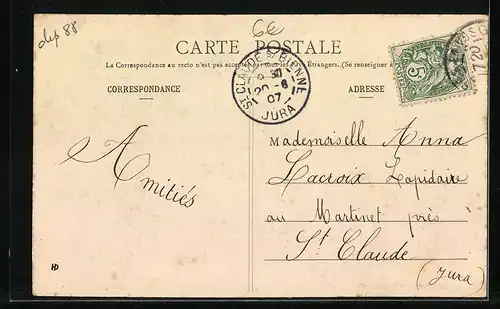 dep 88
6E
CARTE POSTALE
La Correspondance au recto n'est pas acceptée par tous les Pays Étrangers. (Se renseigner à
CORRESPONDANCE
ADRESSE
ST CLAUDE S. BIENNE
20 - 6
07
JURA
5
Amitiés
Mademoiselle Anna
Lacroix Lapidaire
au Martinet près
St Claude
(Jura)